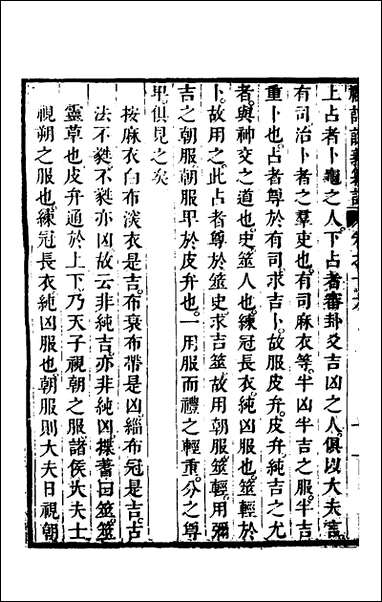 上占者卜龜之人下占者審卦爻吉凶之人俱以大夫言
有司治卜者之羣吏也有司麻衣等半凶半吉之服半吉
重卜也占者尊於有司求吉卜故服皮弁皮弁純吉之尤
者與神交之道也史筮人也練冠長衣純凶服也筮輕於
卜故用之此占者尊於筮史求吉筮故用朝服筮輕用彌
吉之朝服朝服卑於皮弁也一用服而禮之輕重分之尊
卑俱見之矣
按麻衣白布深衣是吉布衰布帶是凶緇布冠是吉古
法不蕤不蕤亦凶故云非純吉亦非純凶揲蓍曰筮筮
靈草也皮弁通於上下乃天子視朝之服諸侯大夫士
視朔之服也練冠長衣純凶服也朝服則大夫日視朝